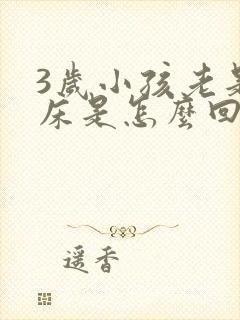 3歲小孩老是
床是怎麼回
遥香